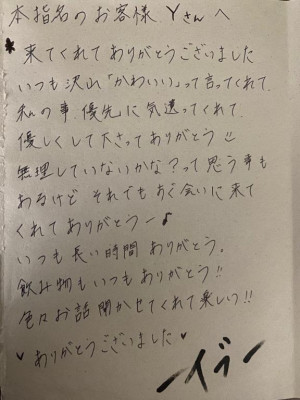 本指名のお客様 Yさんへ
* 来てくれてありがとうございました
いつも沢山「かわいい」って言ってくれて、
私の事優先に気遣ってくれて
優しくして下さってありがとう!!
無理していないかな?って思う事も
あるけど それでも 会いに来て
くれてありがとうー♪
いつも長い時間ありがとう。
飲み物もいつもありがとう!!
色々お話聞かせてくれて楽しい!!
♥ありがとうございました♥